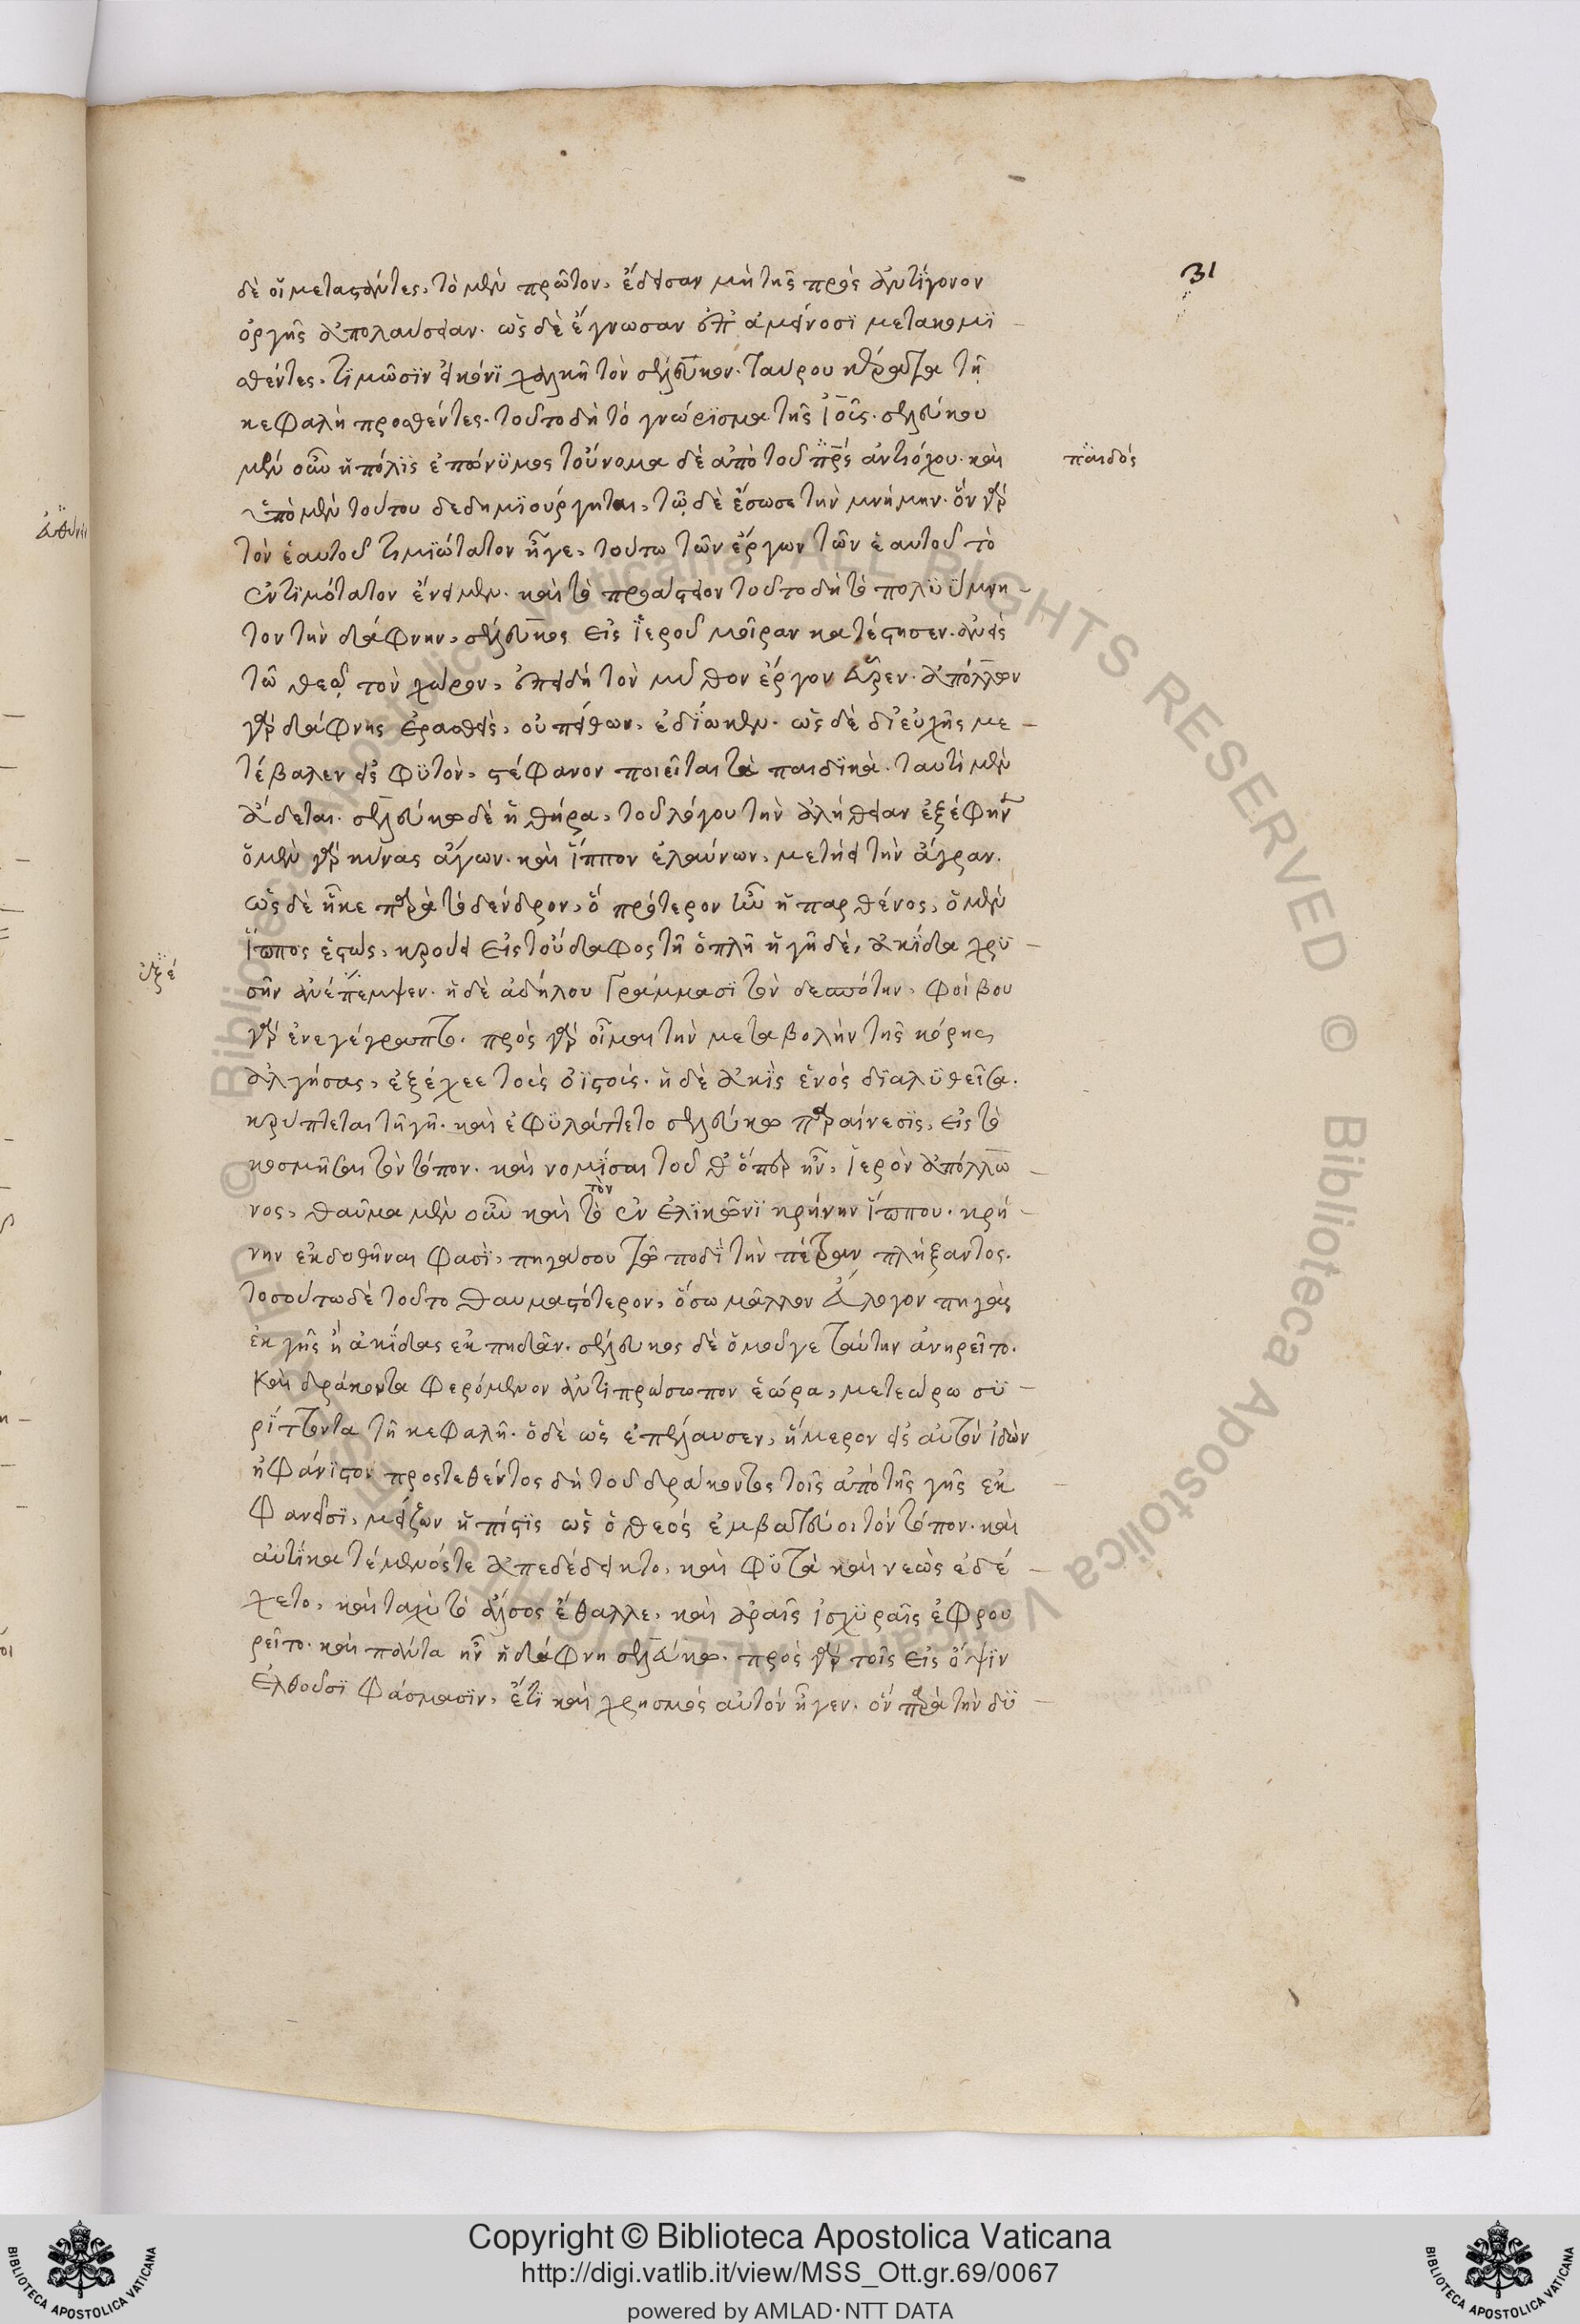 31
δὲ οἱ μεταστάντες, τὸ μὲν πρῶτον, ἔδεισαν μὴ τῆς πρὸς ἀντίγονον
ὀργῆς ἀπολαύσειαν. ὡς δὲ ἔγνωσαν ἐπ' ἀμείνοσι μετακομι-
σθέντες, τιμῶσιν εἰκόνι χαλκῇ τὸν σέλευκον. ταύρου κέρατα τῇ
κεφαλῇ προσθέντες. τοῦτο δὴ τὸ γνώρισμα τῆς ἰοῦς. σελεύκου
μὲν οὖν ἡ πόλις ἐπώνυμος τοὔνομα δὲ ἀπὸ τοῦ π̅ρ̅ς ἀντιόχου. καὶ
παιδός
ὑπὸ μὲν τούτου δεδημιούργηται, τῷ δὲ ἔσωσε τὴν μνήμην. ὃν γὰρ
τὸν ἑαυτοῦ τιμιώτατον ἦγε, τούτω τῶν ἔργων τῶν ἑαυτοῦ τὸ
ἐντιμότατον ἔνειμεν. καὶ τὸ προάστειον τοῦτο δὴ τὸ πολυύμνη-
τον τὴν δάφνην, σέλευκος εἰς ἱεροῦ μοῖραν κατέστησεν. ἀνεὶς
τῶ θεῷ τὸν χῶρον, ἐπειδὴ τὸν μῦθον ἔργον εὗρεν. ἀπόλλων
γὰρ δάφνης ἐρασθεὶς, οὐ πείθων, ἐδίωκεν. ὡς δὲ δι' εὐχῆς με-
τέβαλεν εἰς φυτὸν, στέφανον ποιεῖται τὰ παιδικὰ. ταυτὶ μὲν
ᾄδεται. σελεύκῳ δὲ ἡ θήρα, τοῦ λόγου τὴν ἀλήθειαν ἐξέφηνεν
ὁ μὲν γὰρ κύνας ἄγων. καὶ ἵππον ἐλαύνων, μετῄει τὴν ἄγραν.
ὡς δὲ ἧκε παρὰ τὸ δένδρον, ὃ πρότερον ἦν ἡ παρθένος, ὁ μὲν
ἵππος ἑστὼς, κρούει εἰς τοὔδαφος τῇ ὁπλῇ ἡ γῆ δὲ, ἀκίδα χρυ-
σῆν ἀνέπεμψεν. ἡ δὲ ἐδήλου γράμμασι τὸν δεσπότην. φοίβου
γὰρ ἐνεγέγραπτο. πρὸς γὰρ οἶμαι τὴν μεταβολὴν τῆς κόρης
ἀλγήσας, ἐξέχεε τοὺς ὀϊστούς. ἡ δὲ ἀκὶς ἑνὸς διαλυθεῖσα.
κρύπτεται τῇ γῇ. καὶ ἐφυλάττετο σελεύκῳ παραίνεσις, εἰς τὸ
κοσμῆσαι τὸν τόπον. καὶ νομίσαι τοῦθ' ὅπερ ἦν, ἱερὸν ἀπόλλω-
νος, θαῦμα μὲν οὖν καὶ τὸ ἐν ἑλικῶνι κρήνην ἵππου. κρή-
τὸν
νην ἐκδοθῆναι φασὶ, πηγάσου τῷ ποδὶ τὴν πέτραν πλήξαντος.
τοσούτω δὲ τοῦτο θαυμαστότερον, ὅσω μᾶλλον ἄλογον πηγὰς
ἐκ γῆς ἢ ἀκίδας ἐκπηδᾶν. σέλευκος δὲ ὁμοῦ γε ταύτην ἀνῃρεῖτο.
καὶ δράκοντα φερόμενον ἀντιπρόσωπον ἑώρα, μετεώρω συ-
ρίττοντα τῇ κεφαλῇ. ὁ δὲ ὡς ἐπέλαυσεν, ἥμερον εἰς αὐτὸν ἰδὼν
ἠφάνιστον προστεθέντος δὴ τοῦ δράκοντος τοῖς ἀπὸ τῆς γῆς ἐκ
φανεῖσι, μείζων ἡ πίστις ὡς ὁ θεὸς ἐμβατεύοι τὸν τόπον. καὶ
αὐτίκα τέμενός τε ἀπεδέδεικτο, καὶ φυτὰ καὶ νεὼς ἐδέ-
χετο, καὶ ταχὺ τὸ ἄλσος ἔθαλλε, καὶ ἀραῖς ἰσχυραῖς ἐφρου
ρεῖτο. καὶ πάντα ἦν ἡ δάφνη σελεύκῳ. πρὸς γὰρ τοῖς εἰς ὄψιν
ἐλθοῦσι φάσμασιν, ἔτι καὶ χρησμὸς αὐτὸν ἦγεν. ὃν παρὰ τὴν δυ-
Copyright © Biblioteca Apostolica Vaticana
http://digi.vatlib.it/view/MSS_Ott.gr.69/0067
powered by AMLAD·NTT DATA